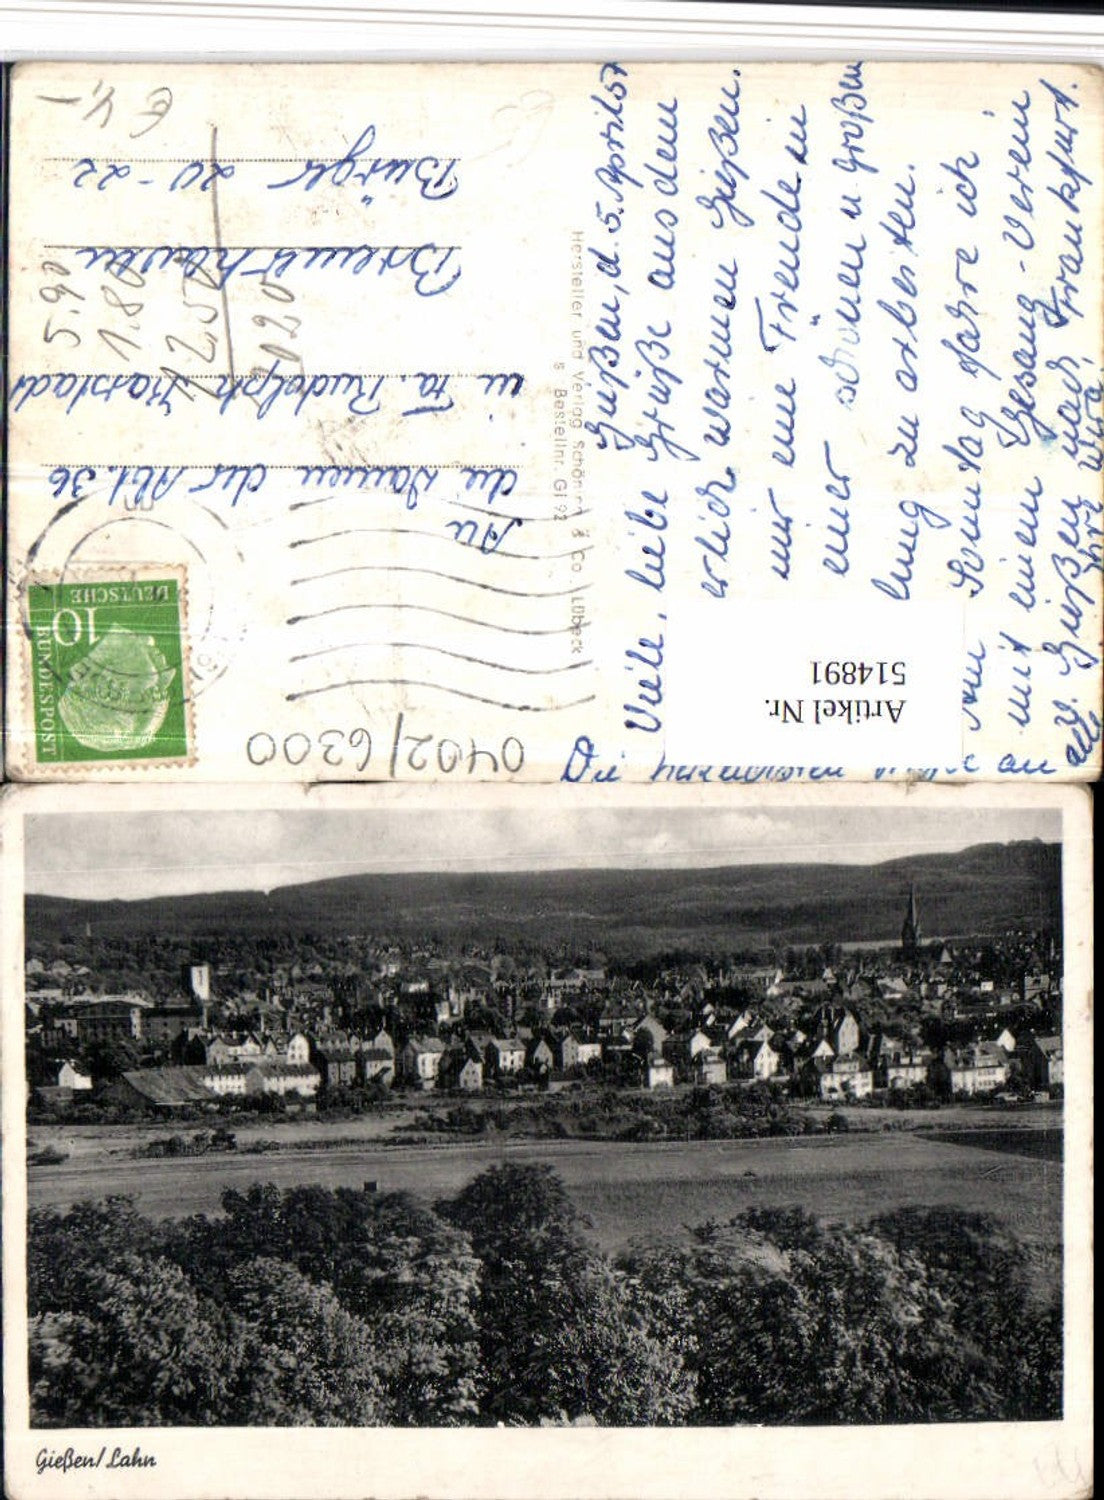 Gießen, d. 5. April 57
Viele, liebe Grüße aus dem
warmen Gießen.
mir eine Freude in
einer schönen u großen
lung zu arbeiten.
Am Sonntag fahre ich
mit einem Gesang-Verein
v. Gießen nach Frankfurt.
wird
Die
an
alle
An
die Damen der Abt. 36
in Fa. Rudolph Karstadt
Bremerhaven
Bürger 20-22
Hersteller und Verlag Schöning & Co., Lübeck
Bestellnr. Gi 92
DEUTSCHE
BUNDESPOST
10
0402/6300
5.90
1.80
12.50
20.20
€ 4,-
Artikel Nr.
514891
Gießen/Lahn